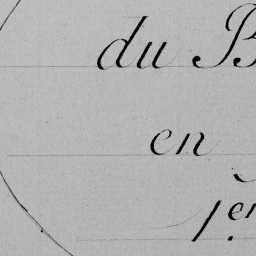 du B
en
1er